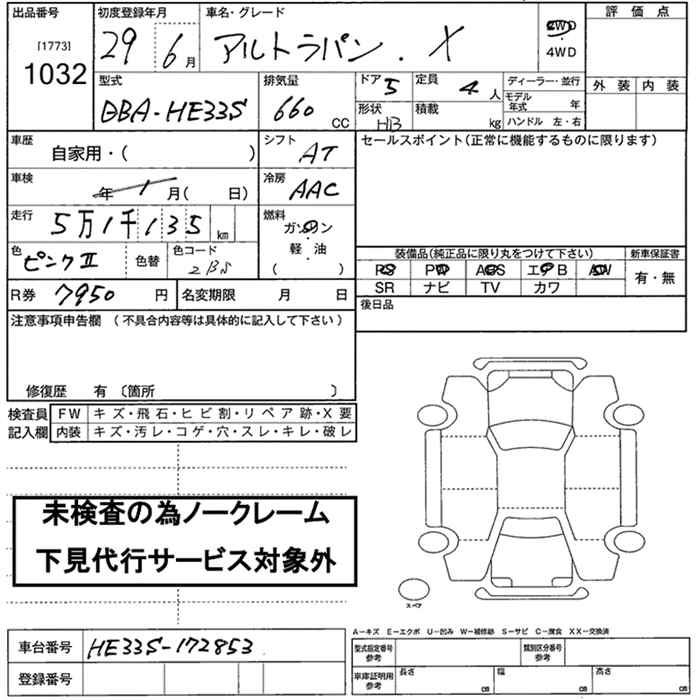 出品番号 初度登録年月 車名・グレード 評価点
[1773] 29 6月 アルトラパン . X 2WD
1032 4WD
外装 内装
型式 排気量 ドア 5 定員 4人 ディーラー・並行
DBA-HE33S 660 CC 形状 HB 積載 kg モデル年式 年
ハンドル 左・右
車歴 自家用・( ) シフト AT セールスポイント(正常に機能するものに限ります)
車検 年 1 月( 日) 冷房 AAC
走行 5万1千135 km 燃料 ガソリン
軽・油
( )
色 ピンクⅡ 色替 色コード 装備品(純正品に限り丸をつけて下さい) 新車保証書
PS PW ABS エアB AW 有・無
SR ナビ TV カワ
R券 7950 円 名変期限 月 日 後日品
注意事項申告欄 (不具合内容等は具体的に記入して下さい)
修復歴 有 〔箇所 〕
検査員 FW キズ・飛石・ヒビ割・リペア跡・X要
記入欄 内装 キズ・汚レ・コゲ・穴・スレ・キレ・破レ
未検査の為ノークレーム
下見代行サービス対象外
スペア
A−キズ E−エクボ U−凹み W−補修跡 S−サビ C−腐食 XX−交換済
車台番号 HE33S-172853 型式指定番号 参考 類別区分番号 参考
登録番号 車庫証明用 参考 長さ cm 幅 cm 高さ cm